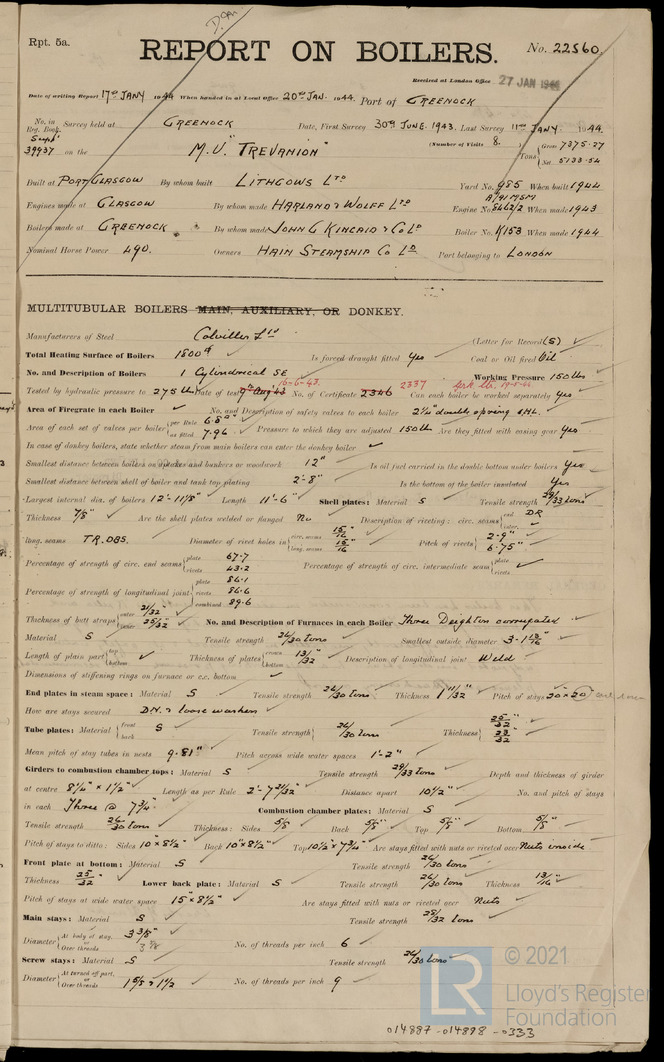 Rpt. 5a.
REPORT ON BOILERS.
No. 22560.
Received at London Office 27 JAN 1944
Date of writing Report 17th JANY 1944 When handed in at Local Office 20th JAN. 1944 Port of GREENOCK
No. in Reg. Book. Survey held at GREENOCK Date, First Survey 30th JUNE. 1943. Last Survey 11th JANY 1944.
(Number of Visits 8.
39937 on the M.V. "TREVANION" Tons Gross 7375.27 Net 5133.54
Built at PORT GLASGOW By whom built LITHGOWS LTD Yard No. 985 When built 1944
Engines made at GLASGOW By whom made HARLAND & WOLFF LTD Engine No. 8462/2 When made 1943
Boilers made at GREENOCK By whom made JOHN G KINCAID & CO LD Boiler No. K153 When made 1944
Nominal Horse Power 490. Owners HAIN STEAMSHIP CO LD Port belonging to LONDON
MULTITUBULAR BOILERS MAIN, AUXILIARY, OR DONKEY.
Manufacturers of Steel Colvilles Ltd (Letter for Record (S)
Total Heating Surface of Boilers 1800 Is forced draught fitted Yes Coal or Oil fired Oil
No. and Description of Boilers 1 Cylindrical SE Working Pressure 150 lbs
16-6-43. 2337
Tested by hydraulic pressure to 275 lbs Date of test No. of Certificate 2346 Can each boiler be worked separately Yes
Area of Firegrate in each Boiler No. and Description of safety valves to each boiler 2½" double spring
Area of each set of valves per boiler per Rule 6.8 as fitted 7.96 Pressure to which they are adjusted 150 lbs Are they fitted with easing gear Yes
In case of donkey boilers, state whether steam from main boilers can enter the donkey boiler
Smallest distance between boilers or uptakes and bunkers or woodwork 12" Is oil fuel carried in the double bottom under boilers Yes
Smallest distance between shell of boiler and tank top plating 2'-8" Is the bottom of the boiler insulated Yes
Largest internal dia. of boilers 12'-11⅞" Length 11'-6" Shell plates: Material S Tensile strength 29/33 tons
Thickness 7/8" Are the shell plates welded or flanged No Description of riveting: circ. seams end DR inter.
long. seams TR.DBS. Diameter of rivet holes in circ. seams 15/16 long. seams 15/16 Pitch of rivets 2.9" 6.75"
Percentage of strength of circ. end seams plate 67.7 rivets 43.2 Percentage of strength of circ. intermediate seam plate rivets
Percentage of strength of longitudinal joint plate 86.1 rivets 86.6 combined 89.6
Thickness of butt straps outer 21/32" inner 25/32" No. and Description of Furnaces in each Boiler Three Deighton corrugated
Material S Tensile strength 26/30 tons Smallest outside diameter 3-1 13/16"
Length of plain part top bottom Thickness of plates crown bottom 13/32 Description of longitudinal joint Weld
Dimensions of stiffening rings on furnace or c.c. bottom
End plates in steam space: Material S Tensile strength 26/30 tons Thickness 1 11/32" Pitch of stays 20 x 20
How are stays secured DN. & loose washers
Tube plates: Material front back S Tensile strength 26/30 tons Thickness 25/32" 23/32
Mean pitch of stay tubes in nests 9.81" Pitch across wide water spaces 1'-2"
Girders to combustion chamber tops: Material S Tensile strength 29/33 tons Depth and thickness of girder
at centre 8¼" x 1½" Length as per Rule 2'-7 23/32" Distance apart 10½" No. and pitch of stays
in each Three @ 7¾" Combustion chamber plates: Material S
Tensile strength 26/30 tons Thickness: Sides 5/8 Back 5/8" Top 5/8" Bottom 5/8"
Pitch of stays to ditto: Sides 10" x 8½" Back 10" x 8½" Top 10½" x 7¾" Are stays fitted with nuts or riveted over Nuts inside
Front plate at bottom: Material S Tensile strength 26/30 tons
Thickness 25/32" Lower back plate: Material S Tensile strength 26/30 tons Thickness 13/16"
Pitch of stays at wide water space 15" x 8½" Are stays fitted with nuts or riveted over Nuts
Main stays: Material S Tensile strength 28/32 tons
Diameter At body of stay, or Over threads 3⅜" No. of threads per inch 6
Screw stays: Material S Tensile strength 26/30 tons
Diameter At turned off part, or Over threads 1⅝ & 1½ No. of threads per inch 9
LR © 2021
Lloyd's Register
Foundation
014887-014898-0333